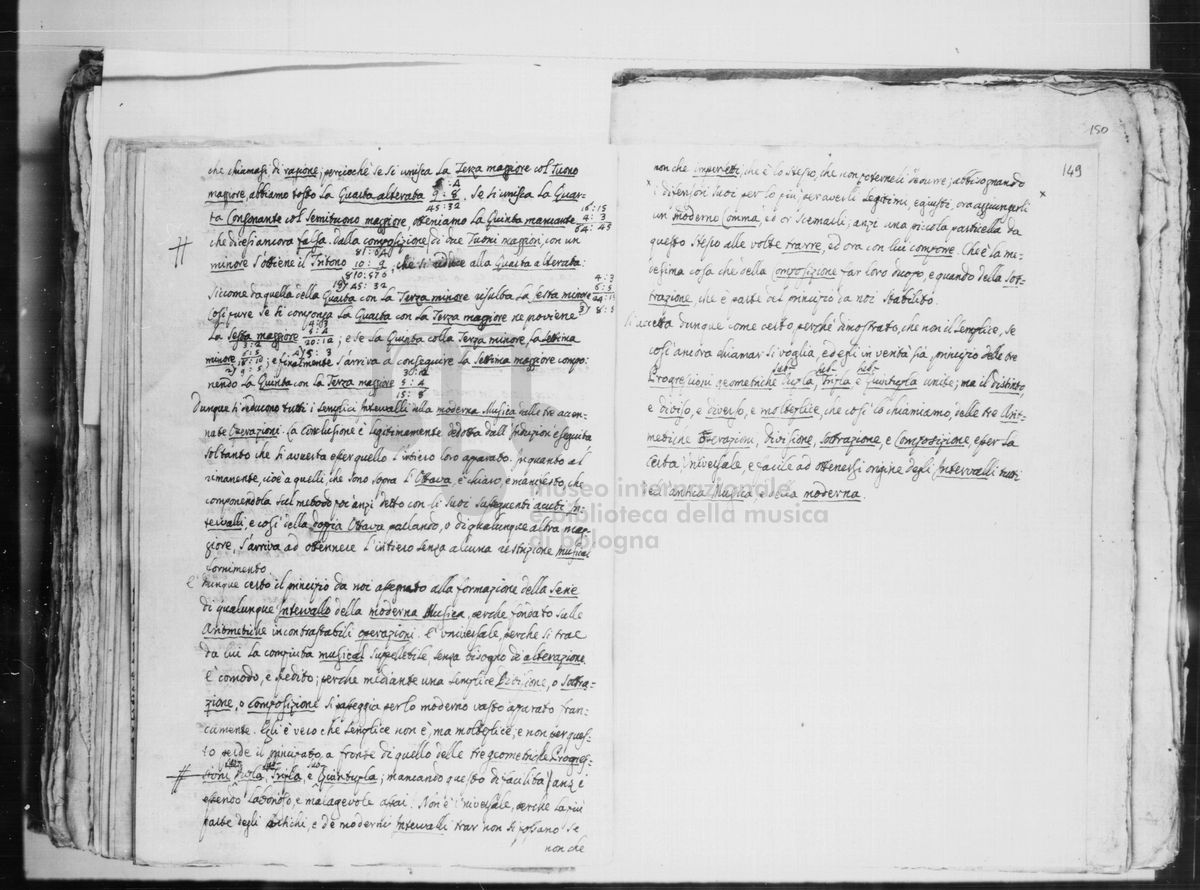 che chiamasi di ragione; perciochè se si unisca la Terza maggiore col Tuono
5 : 4
maggiore, abbiamo tosto la Quarta alterata 9 : 8. Se si unisca la Quar-
45 : 32
ta Consonante col Semituono maggiore, otteniamo la Quinta mancante
16 : 15
4 : 3
64 : 45
che dicesi ancora falsa. Dalla composizione di due Tuoni maggiori, con un
81 : 64
minore s'ottiene il Tritono 10 : 9, che si riduce alla Quarta alterata:
810 : 576
18) 45 : 32
Siccome da quella della Quarta con la Terza minore risulta la Sesta minore
4 : 3
6 : 5
24 : 15
3) 8 : 5
così pure se si componga la Quarta con la Terza maggiore ne proviene
4 : 3
5 : 4
la Sesta maggiore 20 : 12; e se la Quinta colla Terza minore, la Settima
4) 5 : 3
3 : 2
6 : 5
minore 18 : 10; e finalmente s'arriva a conseguire la Settima maggiore compo-
2) 9 : 5
nendo la Quinta con la Terza maggiore 5 : 4
15 : 8
Dunque si reducono tutti i semplici Intervalli nella moderna Musica dalle tre accen-
nate Operazioni. La conclusione è legitimamente dedotta dall'Induzione eseguita
soltanto che si avverta esser quello l'intiero loro apparato. In quanto al
rimanente, cioè a quelli, che sono sopra l'Ottava è chiaro, e manifesto, che
componendola sul metodo poc'anzi detto con li suoi susseguenti acuti In-
tervalli, e così della doppia Ottava parlando, o di qualunque altra mag-
giore, s'arriva ad ottennere l'intiero senza alcuna restrizione musical
fornimento.
È dunque certo il principio da noi assegnato alla formazione della serie
di qualunque Intervallo della moderna Musica, perche fondato sulle
Aritmetiche incontrastabili operazioni. È universale, perche si trae
da lui la compiuta musical suppelletile, senza bisogno di alterazione.
È comodo, e spedito; perche mediante una semplice Divisione, o Sottra-
zione, o Composizione si passeggia per lo moderno vasto apparato fran-
camente. Egli è vero che semplice non è, ma molteplice; e non per ques-
to cede il principato a fronte di quello delle tre geometriche Progres-
sioni Dupla, Tripla, e Quintupla; mancando questo di facilità, anzi
essendo laborioso, e malagevole assai. Non è universale, perche la più
parte degli antichi, e de moderni Intervalli trar non si possano se
non che
150
149
non che imperfetti, che è lo stesso, che non poterneli dedurre; abbisognando
i divisori suoi per lo più, per averli legitimi, e giusti, ora aggiungerli
un moderno Comma, ed or scemarli; anzi una picola particella da
questo stesso alle volte trarre, ed ora con lui comporre. Che è la me-
desima cosa che della Composizione far loro duopo, e quando della Sot-
trazione, che è parte del principio da noi stabilito.
Si accetta dunque come certo, perché dimostrato, che non il semplice, se
così ancora chiamar si voglia, ed egli in verità sia principio delle tre
Progressioni geometriche Dupla, Tripla e Quintupla unite; ma il distinto,
e diviso, e diverso, e molteplice, che così lo chiamiamo, delle tre Arit-
metiche Operazioni, Divisione, Sottrazione, e Composizione, esser la
certa universale, e facile ad ottenersi origine degli Intervalli tutti
ed antica Musica, e della moderna.
museo internazionale
e biblioteca della musica
di bologna